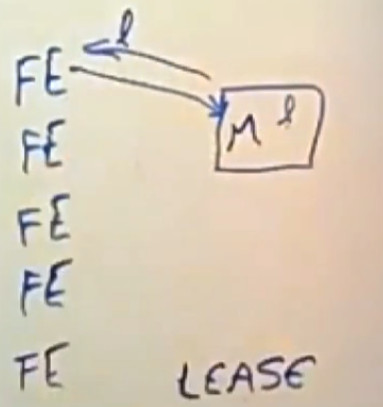 l
FE
M l
FE
FE
FE
FE LEASE